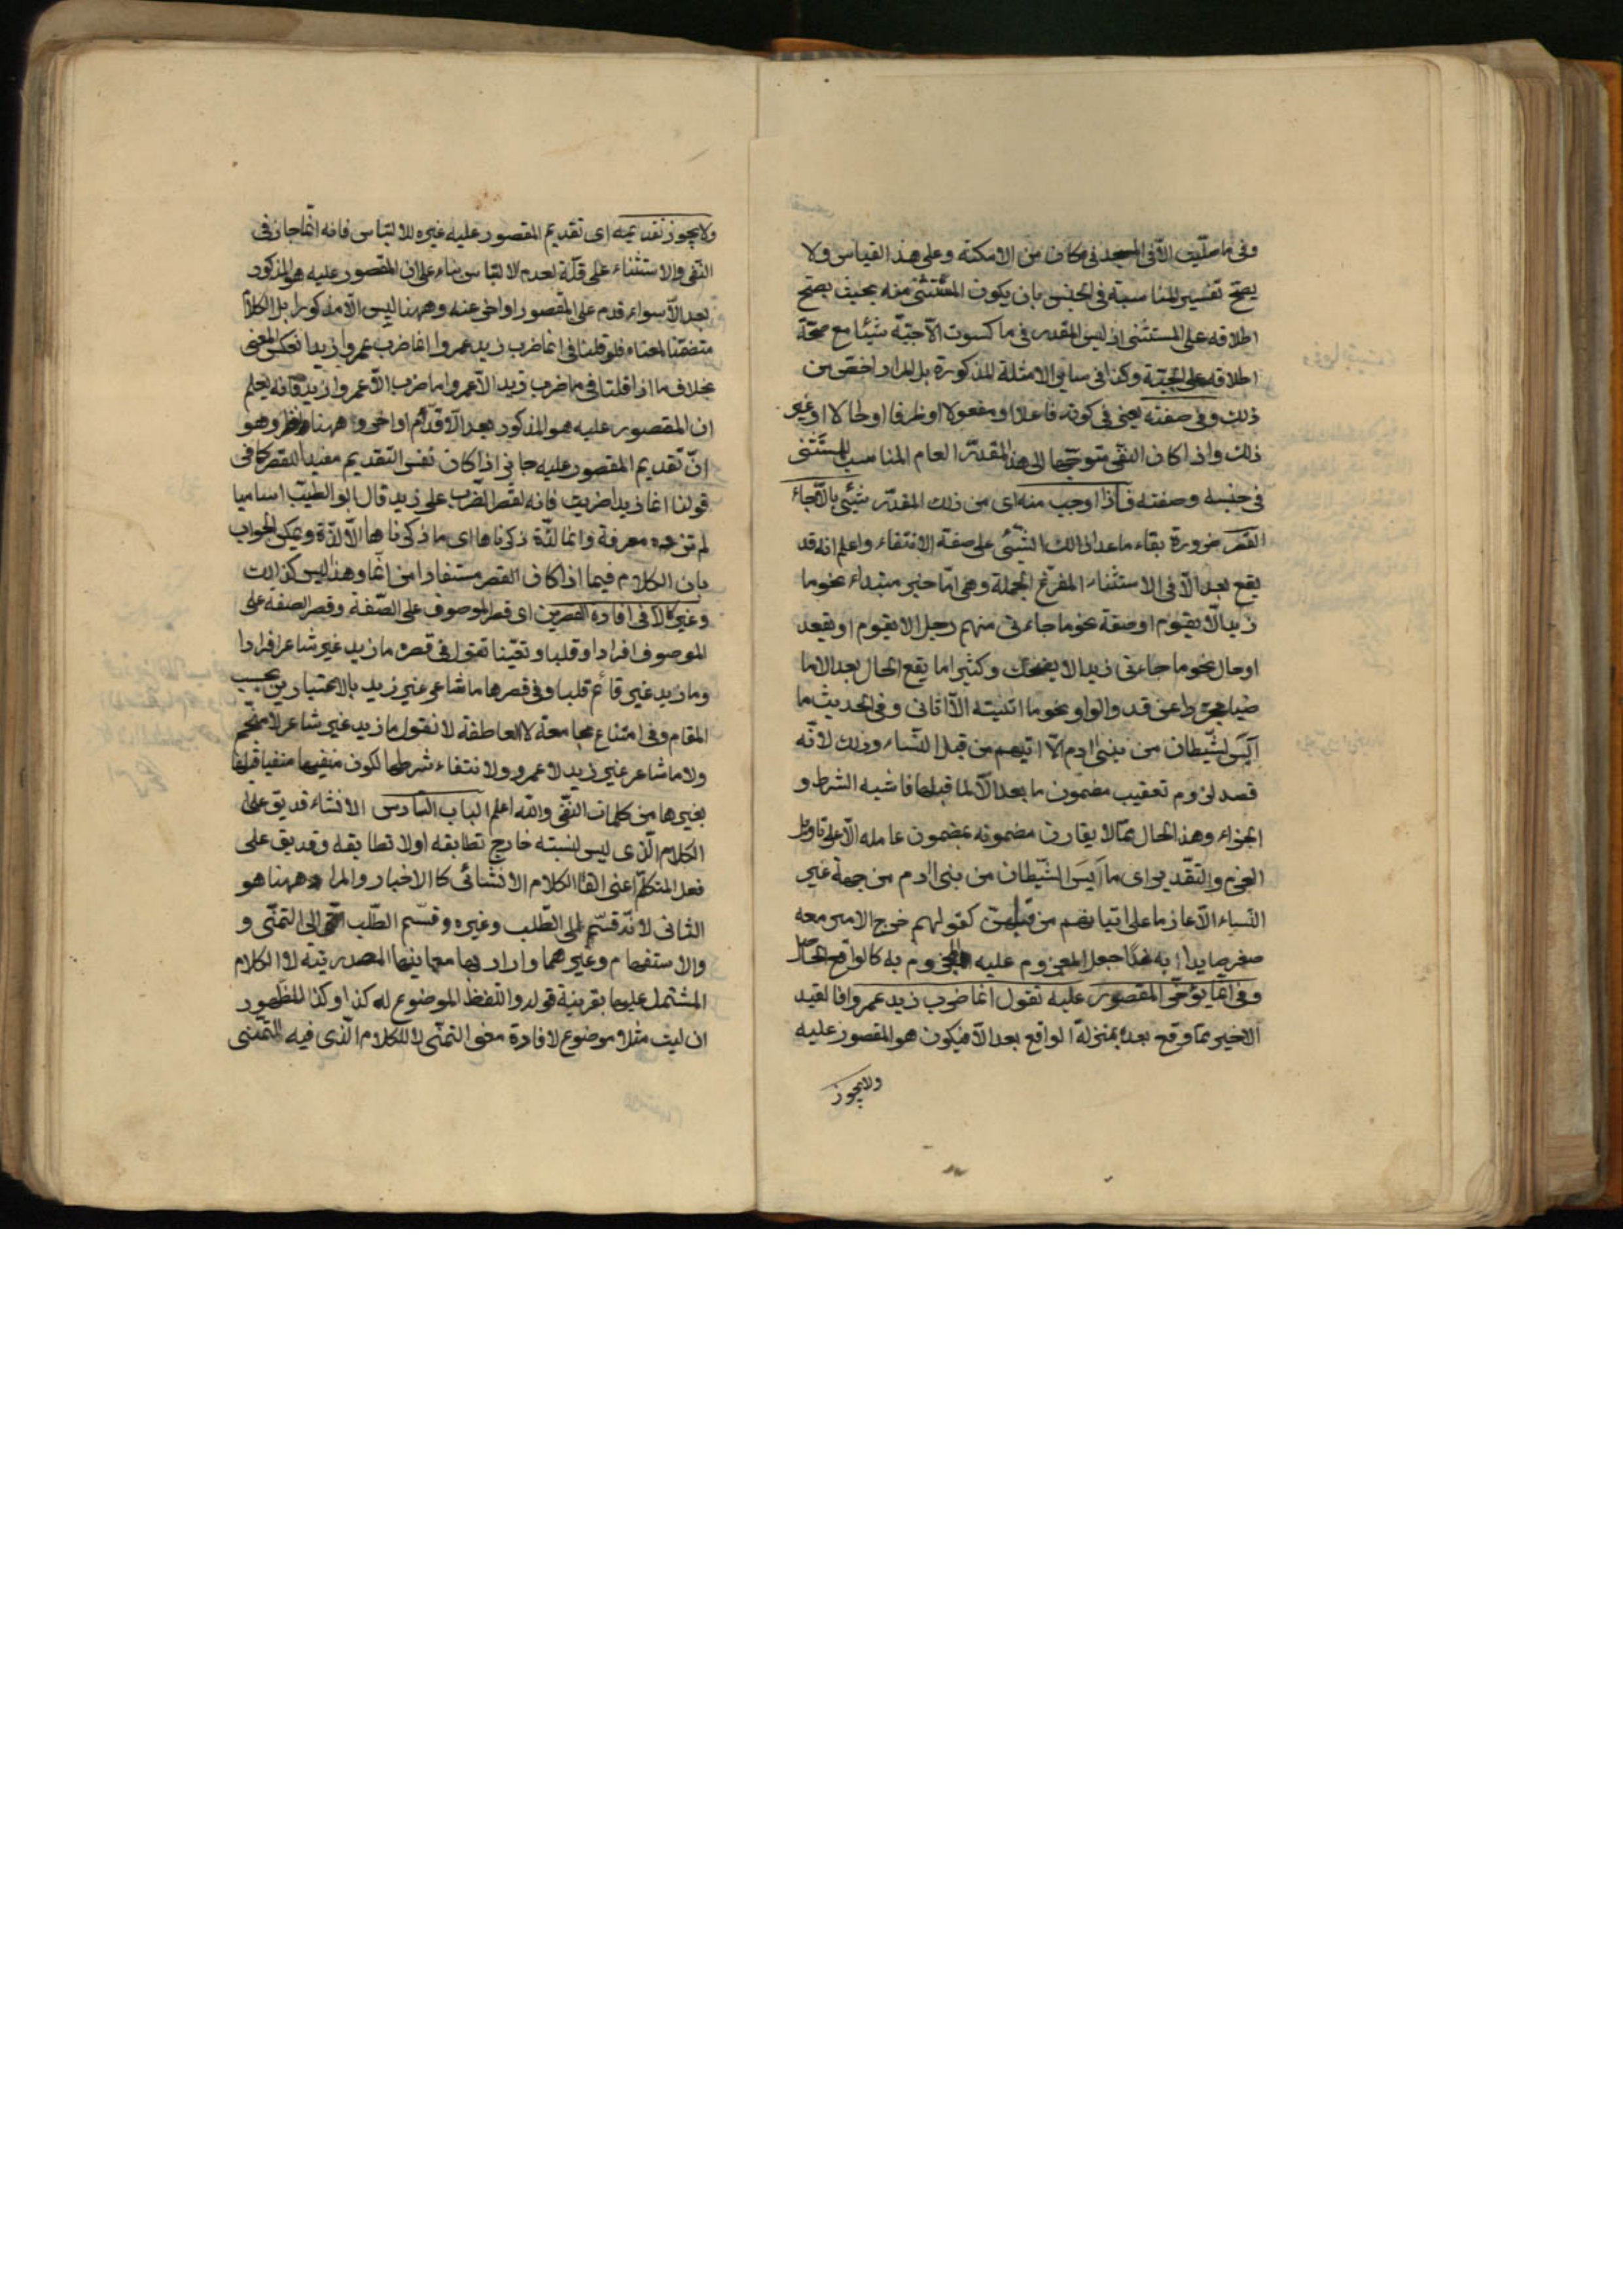 وفى ما صلّيت الّا فى المسجد فى مكان من الامكنة وعلى هذا القياس ولا
يصحّ تفسير المناسبة فى الجنس بان يكون المستثنى منه بحيث يصحّ
اطلاقه على المستثنى اذ ليس المقدر فى ما كسوت الّا جبّة شيئا مع صحّة
اطلاقه على الجبّة وكذا فى سائر الامثلة المذكورة بل المراد اخصّ من
ذلك وفى صفته يعنى فى كونه فاعلا او مفعولا او ظرفا او حالا او غير
ذلك واذا كان النفى متوجّها الى هذا المقدّر العام المناسب للمستثنى
فى جنسه وصفته فاذا اوجب منه اى من ذلك المقدّر شيئ بالّا جاء
القصر ضرورة بقاء ما عدا ذالك الشيئ على صفة الانتفاء واعلم انه قد
يقع بعد الّا فى الاستثناء المفرّغ الجملة وهى امّا خبر مبتداء نحو ما
زيد الّا يقوم او صفة نحو ما جاءنى منهم رجل الا يقوم او يقعد
او حال نحو ما جاءنى زيد الا يضحك وكثيرا ما يقع الحال بعد الا ما
ضيا مجرّدا عن قد والواو نحو ما اتيته الّا اتانى وفى الحديث ما
آيس الشّيطان من بنى ادم الّا اتيهم من قبل النّساء وذلك لانّه
قصد لزوم تعقيب مضمون ما بعد الّا لما قبلها فاشبه الشرط و
الجزاء وهذا الحال ممّا لا يقارن مضمونه بمضمون عامله الّا على تاويل
العزم والتقدير اى ما آيس الشّيطان من بنى ادم من جهة غير
النّساء الّا عازما على اتيانهم من قبلهنّ كقولهم خرج الامير معه
صقر صايدا به غدا جعل المعزوم عليه المجزوم به كالواقع الحاصل
وفى انما يؤخّر المقصور عليه تقول انما ضرب زيد عمروا فالقيد
الاخير ممّا وقع بعده بمنزلة الواقع بعد الّا فيكون هو المقصور عليه
ولا يجوز
ولا يجوز تقديمه اى تقديم المقصور عليه غيره للالتباس فانه انّما جاز فى
النّفى والاستثناء على قلّة لعدم الالتباس بناء على ان المقصور عليه هو المذكور
بعد الّا سواء قدم على المقصور او اخر عنه وههنا ليس الّا مذكورا بل الكلام
متضمّنا لمعناه فلو قلنا فى انما ضرب زيد عمروا انما ضرب عمروا زيد انعكس المعنى
بخلاف ما اذا قلنا فى ما ضرب زيد الّا عمروا ما ضرب الّا عمروا زيد فانه يعلم
ان المقصور عليه هو المذكور بعد الّا قدّم او اخر وههنا نظر وهو
انّ تقديم المقصور عليه جايز اذا كان نفس التقديم مفيدا للقصر كما فى
قولنا انما زيدا ضربت فانه لقصر الضّرب على زيد قال ابو الطيّب اساميا
لم تزده معرفة وانما لذّة ذكرناها اى ما ذكرناها الّا لذّة ويمكن الجواب
بان الكلام فيما اذا كان القصر مستفادا من انّما وهذا ليس كذالك
وغير كالّا فى افادة القصرين اى قصر الموصوف على الصّفة وقصر الصفة على
الموصوف افرادا وقلبا وتعيّنا تقول فى قصره ما زيد غير شاعر افرادا
وما زيد غير قائم قلبا وفى قصرها ما شاعر غير زيد بالاعتبارين بحسب
المقام وفى امتناع مجامعة لا العاطفة لا تقول ما زيد غير شاعر لا منجّم
ولا ما شاعر غير زيد لا عمرو ولانتفاء شرطها لكون منفيها منفيا قبلها
بغيرها من كلمات النّفى والله اعلم الباب السّادس الانشاء قد يق على
الكلام الّذى ليس لنسبته خارج تطابقه او لا تطابقه وقد يق على
فعل المتكلّم اعنى القاء الكلام الانشائى كالاخبار والمراد ههنا هو
الثانى لانّه قسّم الى الطّلب وغيره وقسّم الطّلب الى التمنّى و
والاستفهام وغيرهما واراد بها معانيها المصدريّة لا الكلام
المشتمل عليها بقرينة قوله واللّفظ الموضوع له كذا وكذا لظهور
ان ليت مثلا موضوع لافادة معنى التمنّى لا للكلام الّذى فيه التّمنّى